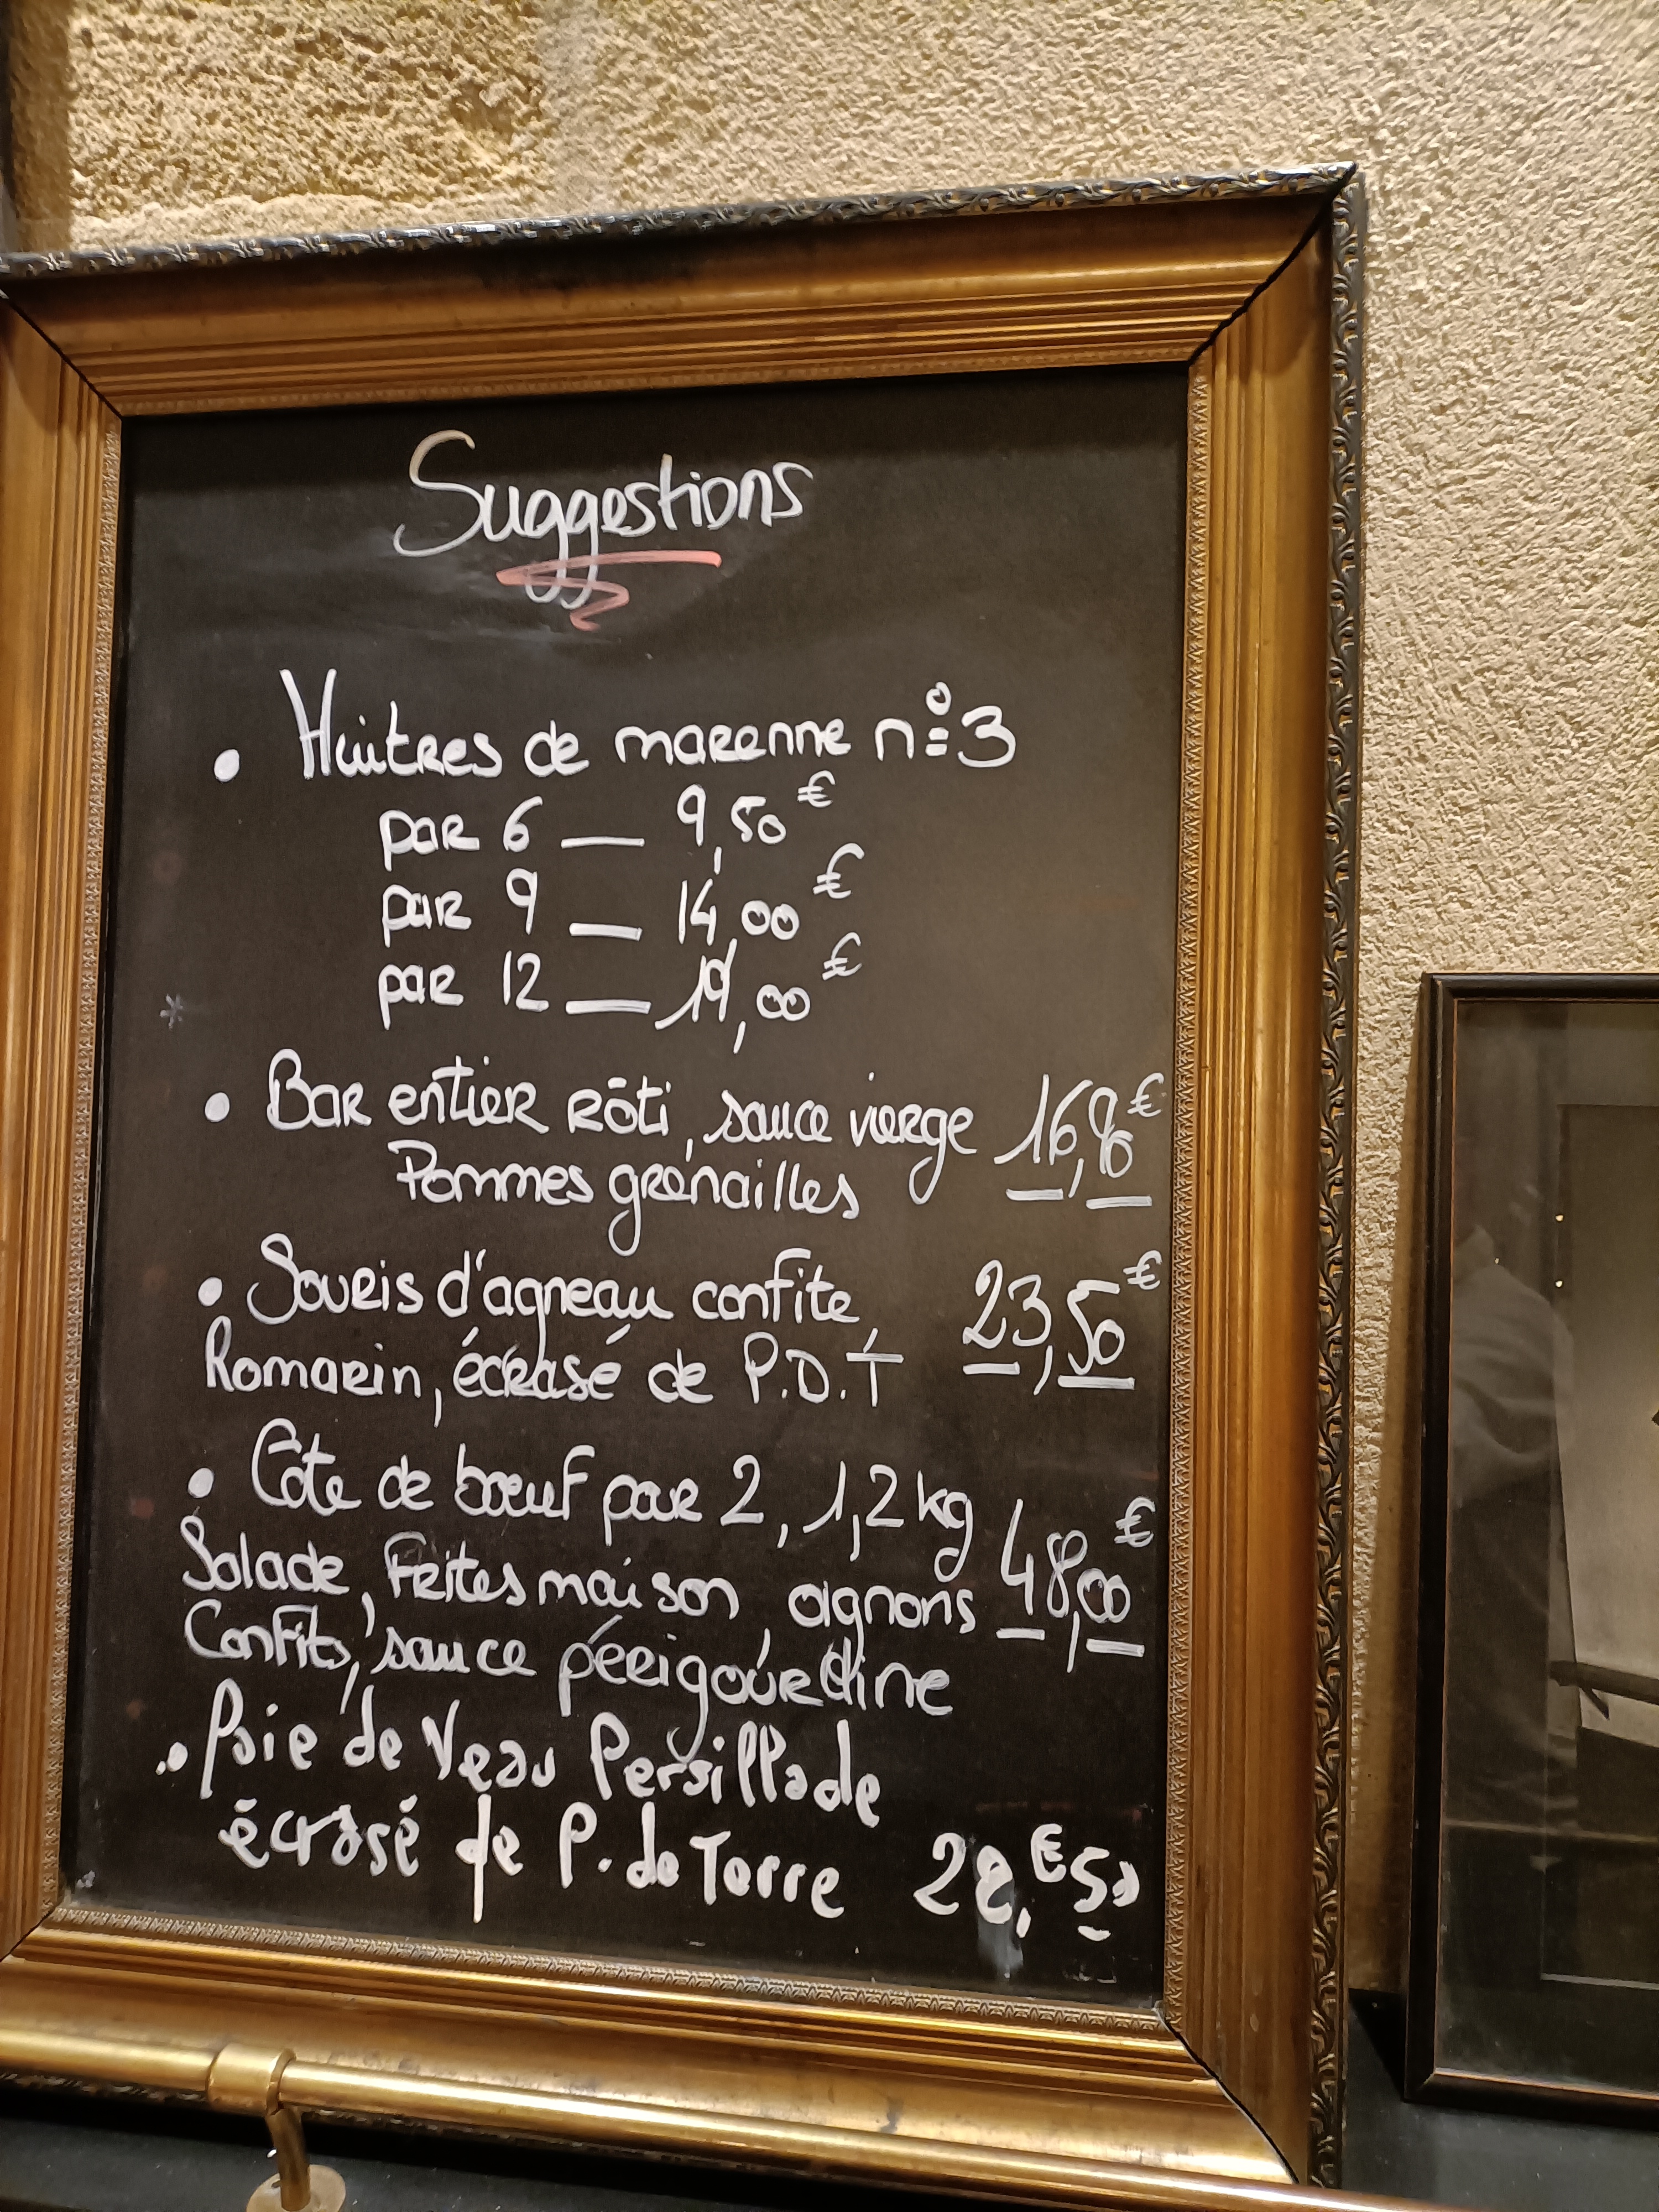 Suggestions
• Huîtres de marenne n°3
par 6 — 9,50€
par 9 — 14,00€
par 12 — 19,00€
• Bar entier rôti, sauce vierge
Pommes grenailles
• Souris d'agneau confite, 23,50€
Romarin, écrasé de P.D.T
• Côte de boeuf pour 2, 1,2kg
Salade, Frites maison, oignons 48,00€
Confits, sauce périgourdine
• Foie de Veau Persillade
écrasé de P. de Terre